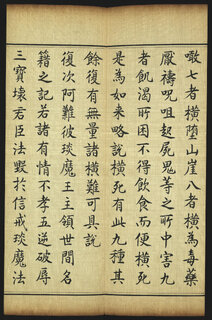 噉七者橫墮山崖八者橫爲毒藥
厭禱呪咀起屍鬼等之所中害九
者飢渴所困不得飲食而便橫死
是爲如來略說橫死有此九種其
餘復有無量諸橫難可具說
復次阿難彼琰魔王主領世間名
籍之記若諸有情不孝五逆破辱
三寶壞君臣法毀於信戒琰魔法